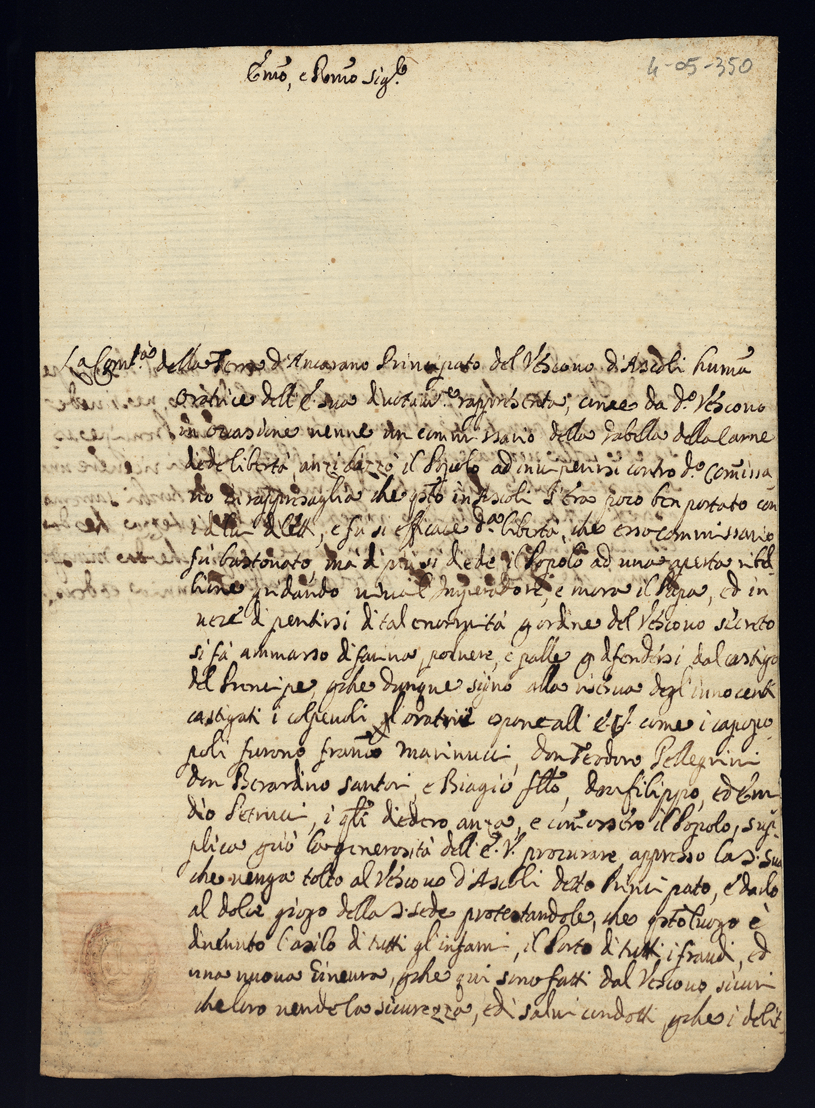 Emo, e Rmo Sig.re
4-05-350
La Com.tà della Terra d'Ancarano Principato del Vescovo d'Ascoli humã
Oratrice dell'E. sua divotam.e rappresenta, come da d.o Vescovo
in occasione venne un commissario della Gabella della Carne
diede libertà anzi il Popolo ad contro d.o Comissa
rio di rappresaglia che gsto in Ascoli s'era poco ben portato con
i delli, e fù si efficace d.a libertà, che esso commissario
fù bastonato, mà di più si diede il Popolo ad una aperta ribel
lione gridando viva l'Imperadore, e mora il Papa, ed in
vece di pentirsi di tal enormità p ordine del Vescovo secreto
si fà ammasso di farina, polvere, e palle p difendersi dal castigo
del Prencipe, pche dunque siano alla riserva degl'innocenti
castigati i colpevoli l'oratrice espone all'E.V. come i capipo
poli furono Franco Marinucci, Don Teodoro Pellegrini
Don Berardino Santori, e Biagio fllo, Don Filippo, ed Emi
dio Petrucci, i qli diedero anza, e commossero il Popolo, sup
plica pciò la generosità dell'E.V. procurare appresso la S. Sua
che venga tolto al Vescovo d'Ascoli detto Principato, e darlo
al dolce giogo della S. Sede protestandole, che qsto luogo è
divenuto l'asilo di tutti gl'infami, il Porto di tutti i fraudi, ed
una nuova Ginevra, pche qui sono fatti dal Vescovo sicuri
che loro vende la sicurezza, ed i salvi condotti pche i delit